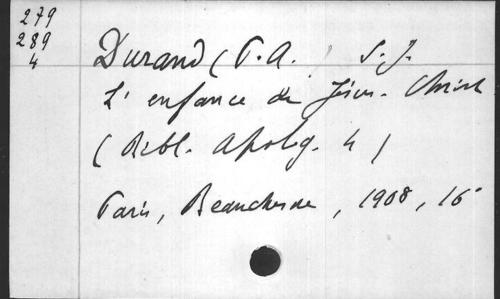 279
289
4
Durand (P. A. ) S. J.
L' enfance de Jésus-Christ
( Bibl. Apolog. 4 )
Paris, Beauchesne, 1908, 16°